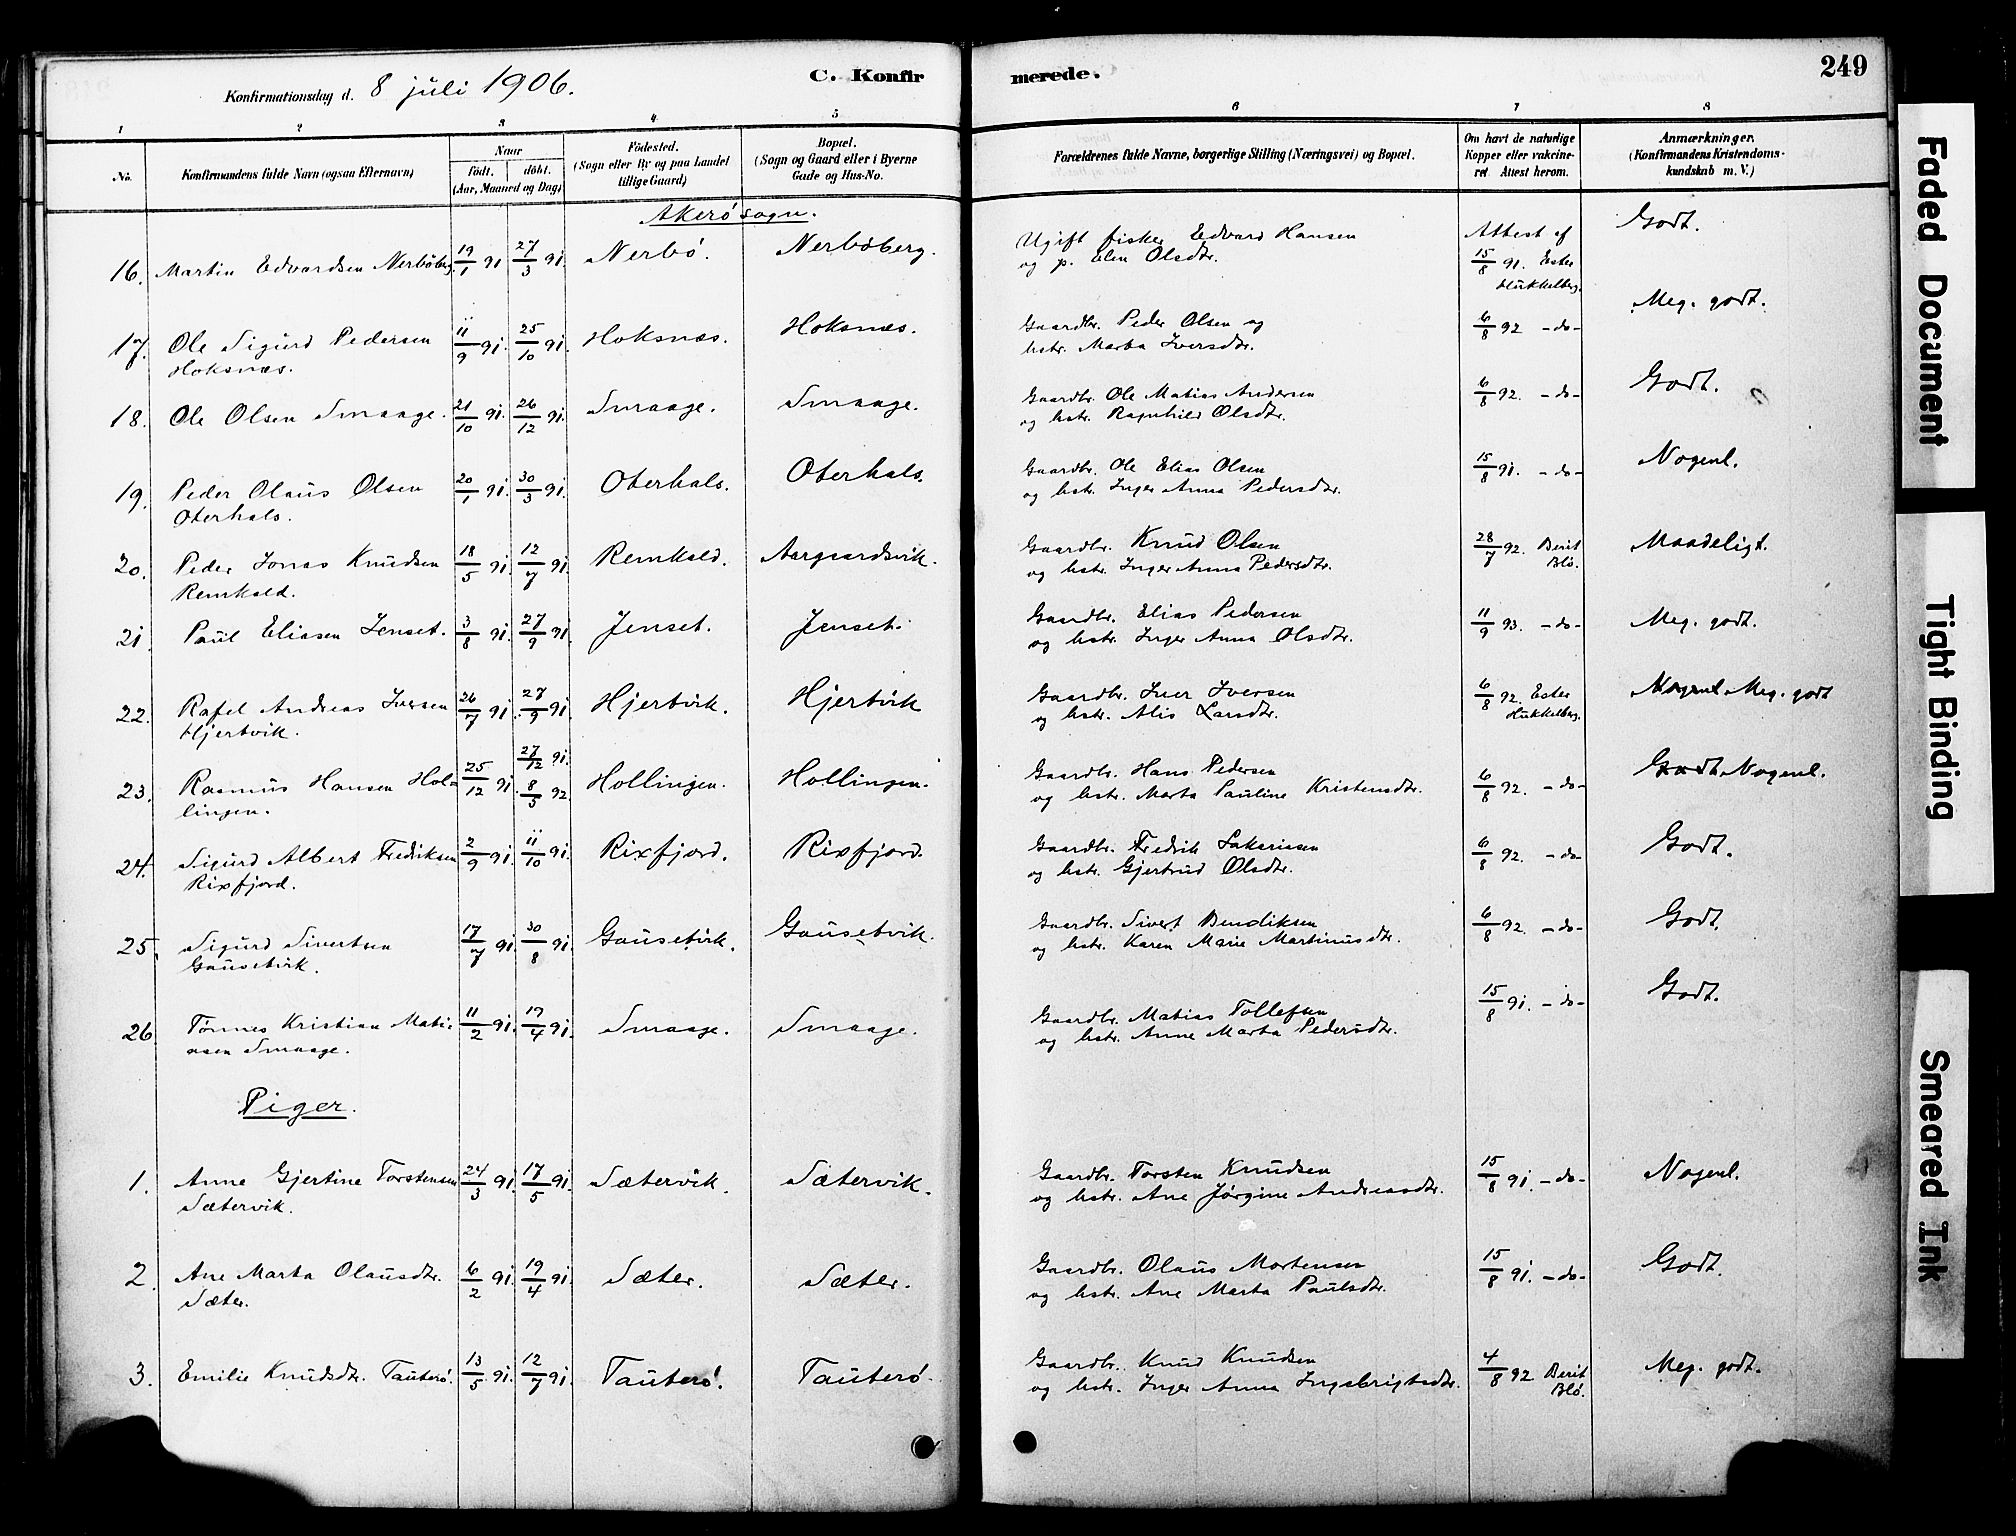 Konfirmationsdag d. 8 juli 1906.
C. Konfirmerede.
249
1 2 3 4 5 6 7 8
No.
Konfirmandens fulde Navn (ogsaa Efternavn)
Naar
födt. döbt.
(Aar, Maaned og Dag)
Födested.
(Sogn eller By og paa Landet
tillige Gaard)
Bopæl.
(Sogn og Gaard eller i Byerne
Gade og Hus-No.
Forældrenes fulde Navne, borgerlige Stilling (Næringsvei) og Bopæl.
Om havt de naturlige
Kopper eller vakcine-
ret Attest herom.
Anmærkninger.
(Konfirmandens Kristendoms-
kundskab m. V.)
Akerö sogn.
16. Martin Edvardsen Nerböberg 19/1 91 27/3 91. Nerbö. Nerböberg. Ugift fisker Edvard Hansen Attest af Godt.
og p. Elen Olsdtr. 15/8 91. Ester
Hukkelberg.
17. Ole Sigurd Pedersen 11/9 91. 25/10 91. Hoksnæs. Hoksnæs. Gaardbr. Peder Olsen og 6/8 92 -do- Meg. godt.
Hoksnæs. hstr. Marta Iversdtr.
18. Ole Olsen Smaage. 21/10 91. 26/12 91. Smaage. Smaage. Gaardbr. Ole Matias Andersen 6/8 92. -do- Godt.
og hstr. Ragnhild Olsdtr.
19. Peder Olaus Olsen 20/1 91. 30/3 91. Oterhals. Oterhals. Gaardbr. Ole Elias Olsen 15/8 91. -do- Nogenl.
Oterhals. og hstr. Inger Anna Pedersdtr.
20. Peder Jonas Knudsen 18/5 91. 12/7 91. Remkald. Aargaardsvik. Gaardbr. Knud Olsen 28/7 92. Berit Maadeligt.
Remkald. og hstr. Inger Anna Pedersdtr. Blö.
21 Paul Eliasen Jenset. 3/8 91. 27/9 91 Jenset. Jenset. Gaardbr. Elias Pedersen 11/9 93. -do- Meg. godt.
og hstr. Inger Anna Olsdtr.
22. Rafel Andreas Iversen 26/7 91. 27/9 91. Hjertvik. Hjertvik Gaardbr. Iver Iversen 6/8 92. Ester Nogenl Meg. godt
Hjertvik. og hstr. Alis Larsdtr. Hukkelberg.
23. Rasmus Hansen Hol= 25/12 91. 27/12 91. 8/5 92 Hollingen. Hollingen. Gaardbr. Hans Pedersen 6/8 92. -do- Godt Nogenl.
lingen. og hstr. Marta Pauline Kristensdtr.
24. Sigurd Albert Frediksen 2/9 91. 11/10 91. Rixfjord. Rixfjord. Gaardbr. Fredrik Sakariasen 6/8 92. -do- Godt.
Rixfjord. og hstr. Gjertrud Olsdtr.
25. Sigurd Sivertsen 17/7 91. 30/8 91. Gausetvik. Gausetvik. Gaardbr. Sivert Bendiksen 6/8 92. -do- Godt.
Gausetvik. og hstr. Karen Marie Martinusdtr.
26 Tönnes Kristian Mati- 11/2 91. 19/4 91. Smaage. Smaage. Gaardbr. Matias Tollefsen 15/8 91. -do- Godt.
asen Smaage. og hstr. Anne Marta Pedersdtr.
Piger.
1. Anne Gjertine Torstensen 24/3 91. 17/5 91. Sætervik. Sætervik. Gaardbr. Torsten Knudsen 15/8 91. -do- Nogenl.
Sætervik. og hstr. Ane Jörgine Andreasdtr.
2. Ane Marta Olausdtr. 6/2 91. 19/4 91. Sæter. Sæter. Gaardbr. Olaus Mortensen 15/8 91. -do- Godt.
Sæter. og hstr. Ane Marta Paulsdtr.
3. Emilie Knudsdtr. Tauterö. 13/5 91. 12/7 91. Tauterö. Tauterö. Gaardbr. Knud Knudsen 4/8 92 Berit Meg. godt.
og hstr. Inger Anna Ingebrigtsdtr. Blö.
Faded Document
Tight Binding
Smeared Ink